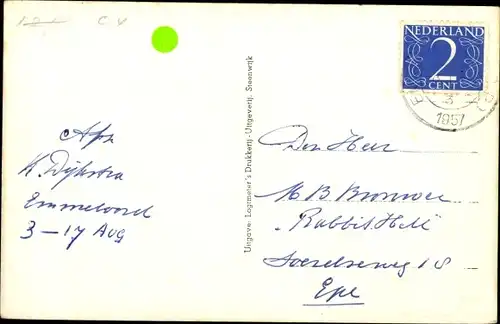 C V
NEDERLAND
2
CENT
3
1957
Afz
K. Dijkstra
Emmeloord
3 - 17 Aug
Uitgave: Lagrmeter's Drukkerij-Uitgeverij, Steenwijk
Den Heer
M B Brouwer
„Rabbit Hill"
Soerelseweg 18
Epe